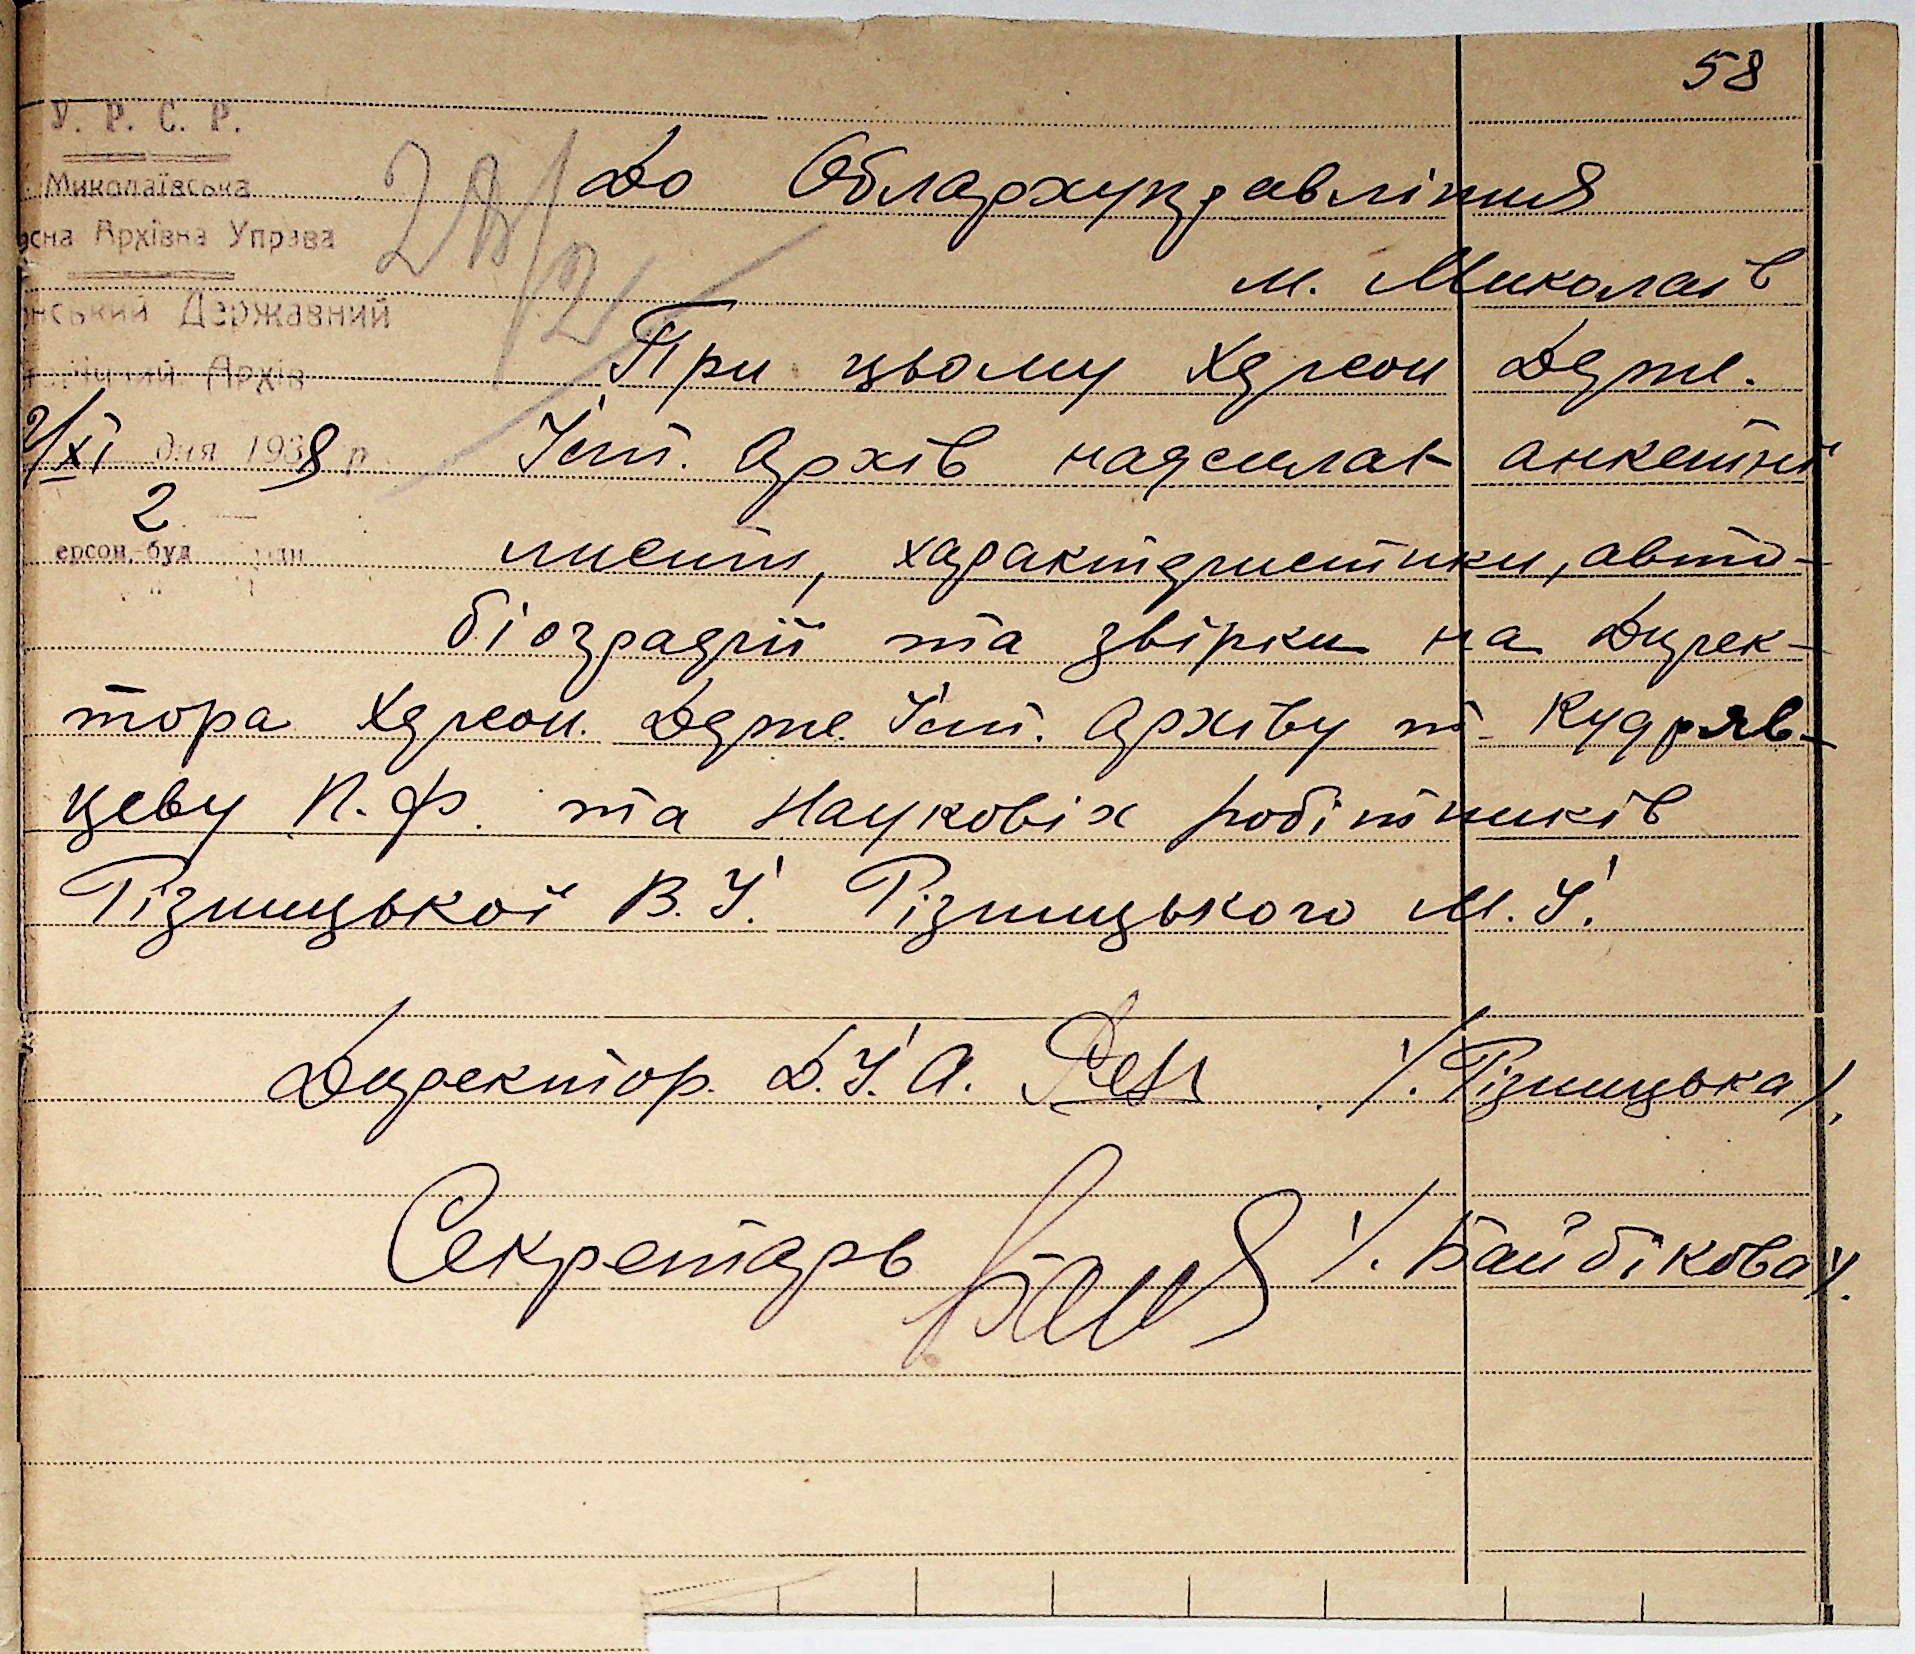 58
У. Р. С. Р.
Миколаївська
сна Архівна Управа
нський Державний
Архів
2/XI дня 1938 р.
2
ерсон, буд
28/2
До Облархуправління
м. Миколаїв
При цьому Херсон Держ.
Іст. Архів надсилає анкетні
листи, характеристики, авто-
біографії та звірки на Дирек-
тора Херсон. Держ. Іст. Архіву т. Кудряв-
цеву П.Ф. та Наукових робітників
Різницької В.І. Різницького М.І.
Директор Д.І.А. /. Різницька/.
Секретарь /. Байбікова/.